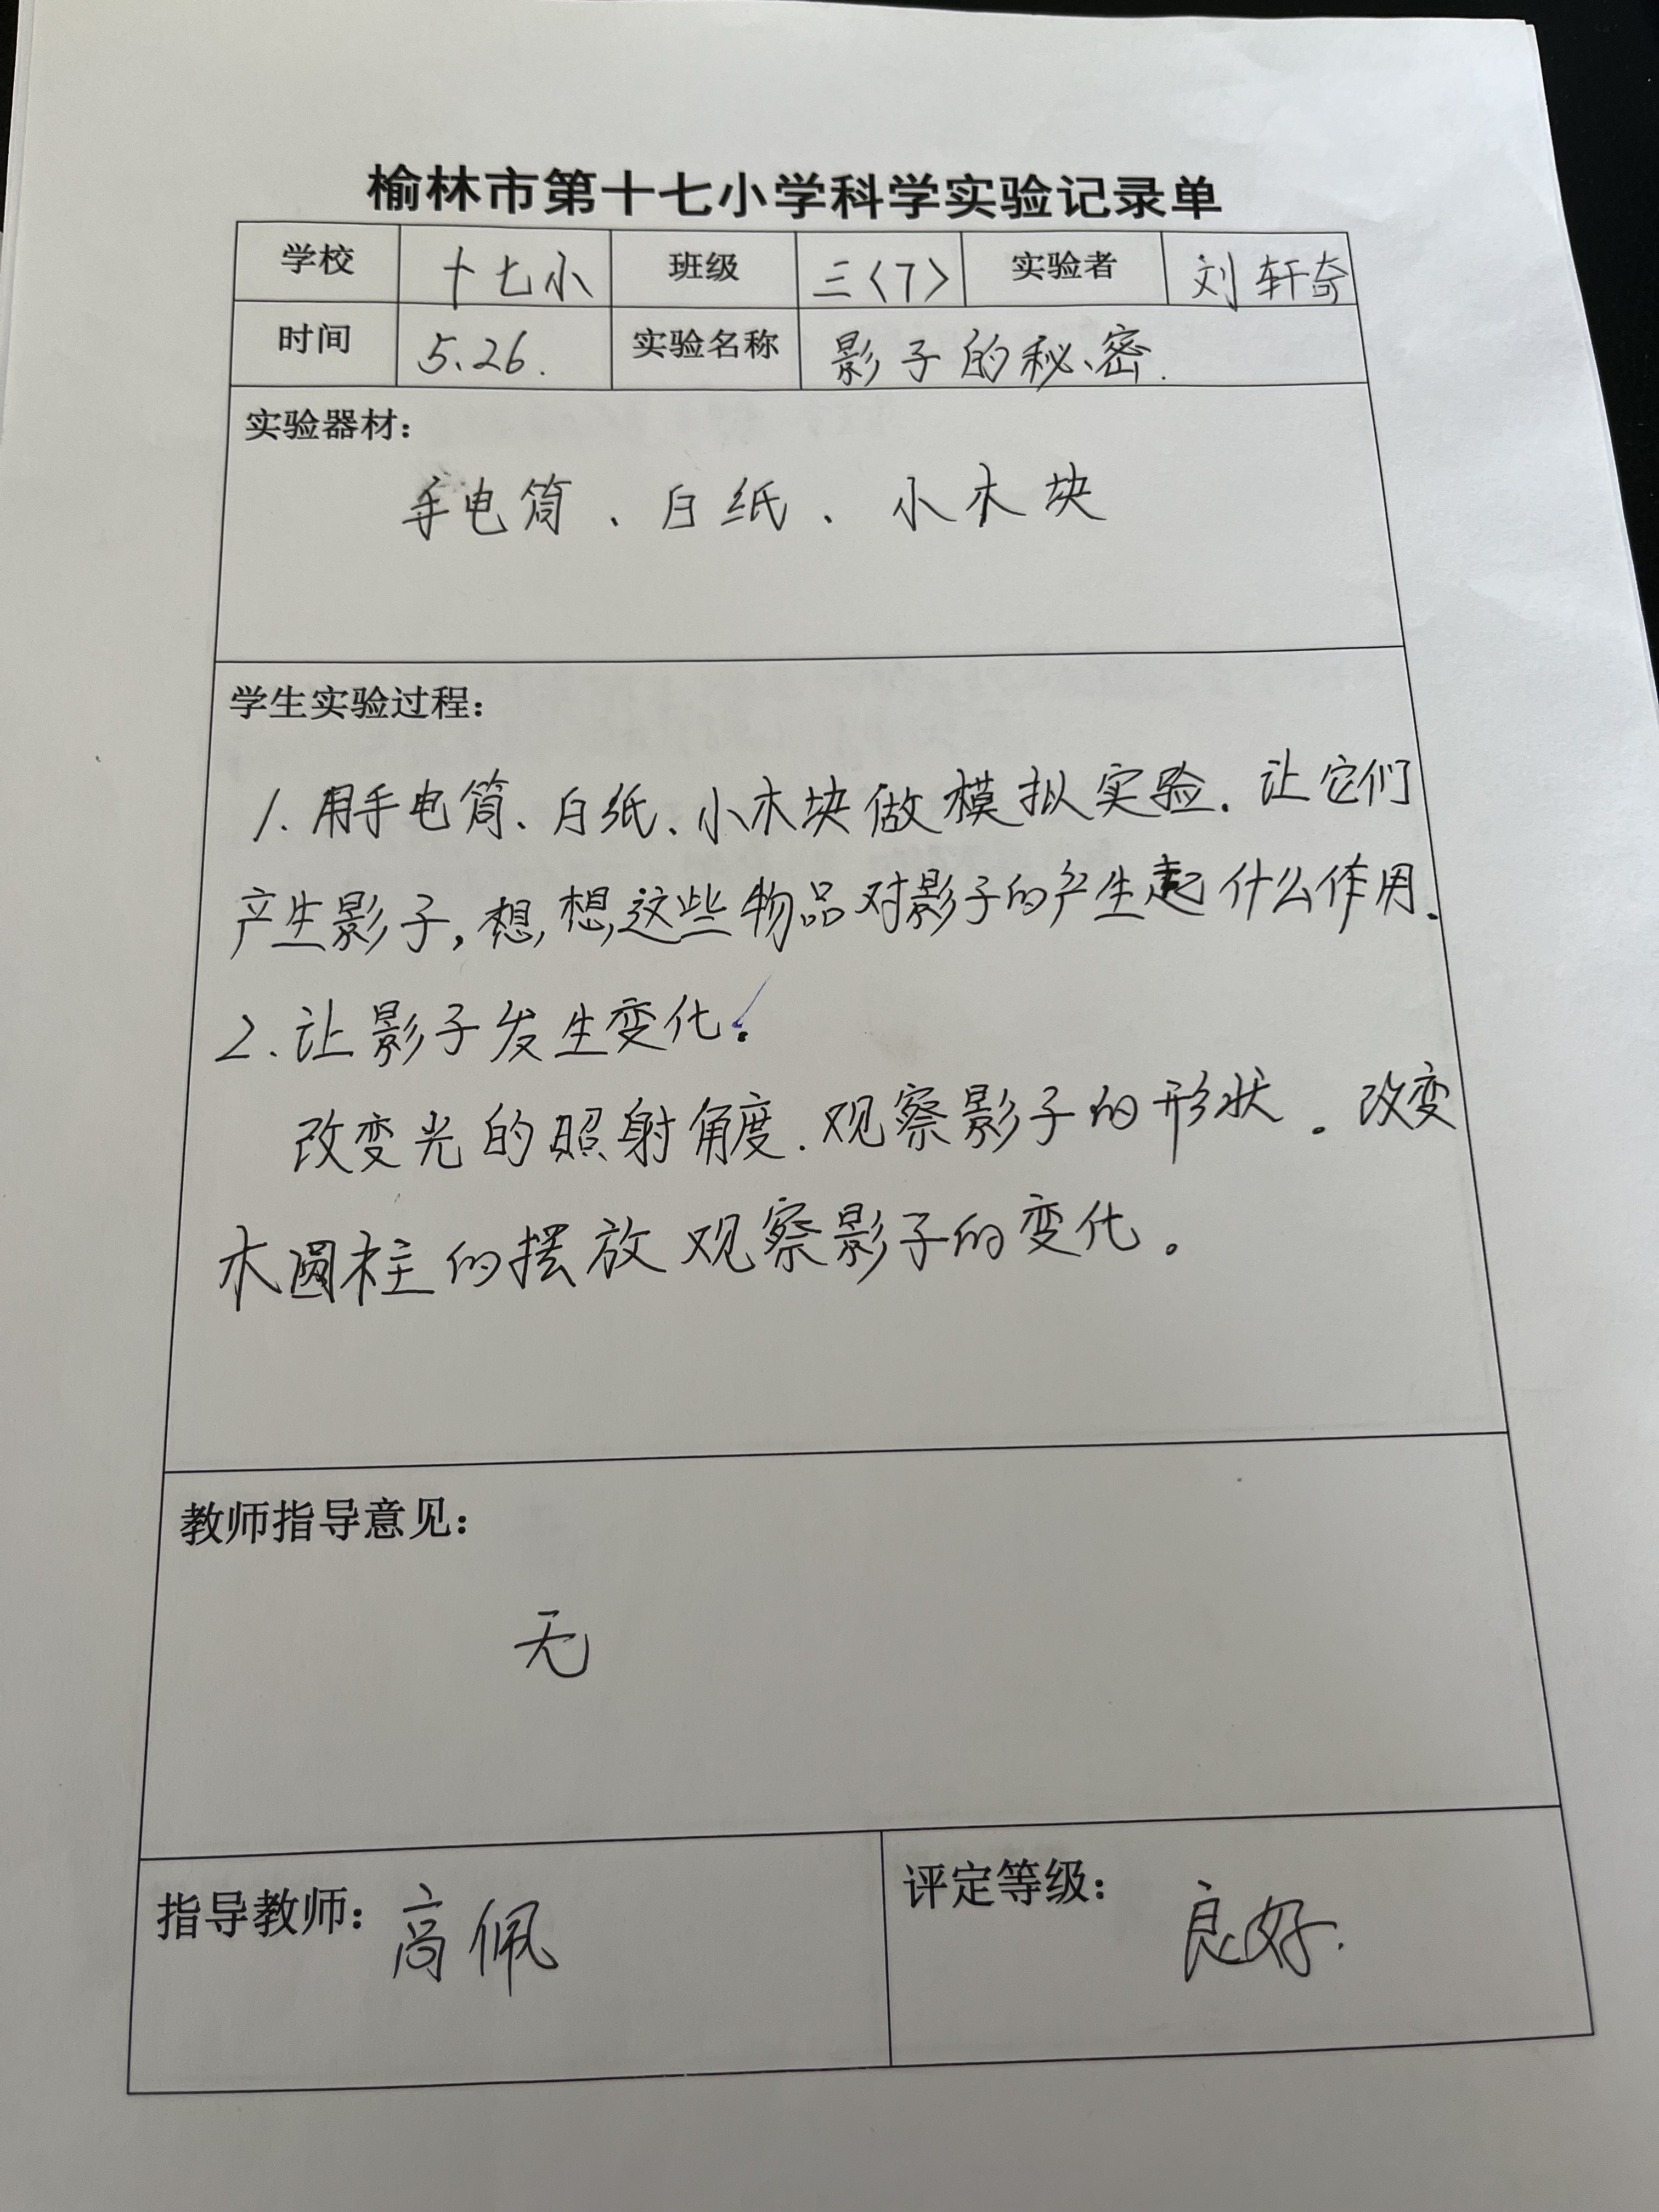 榆林市第十七小学科学实验记录单
学校 十七小 班级 三〈7〉 实验者 刘轩奇
时间 5.26. 实验名称 影子的秘密.
实验器材：
手电筒、白纸、小木块
学生实验过程：
1.用手电筒、白纸、小木块做模拟实验.让它们
产生影子,想,想,这些物品对影子的产生起什么作用.
2.让影子发生变化。
改变光的照射角度.观察影子的形状。改变
木圆柱的摆放观察影子的变化。
教师指导意见：
无
指导教师：高佩 评定等级：良好.